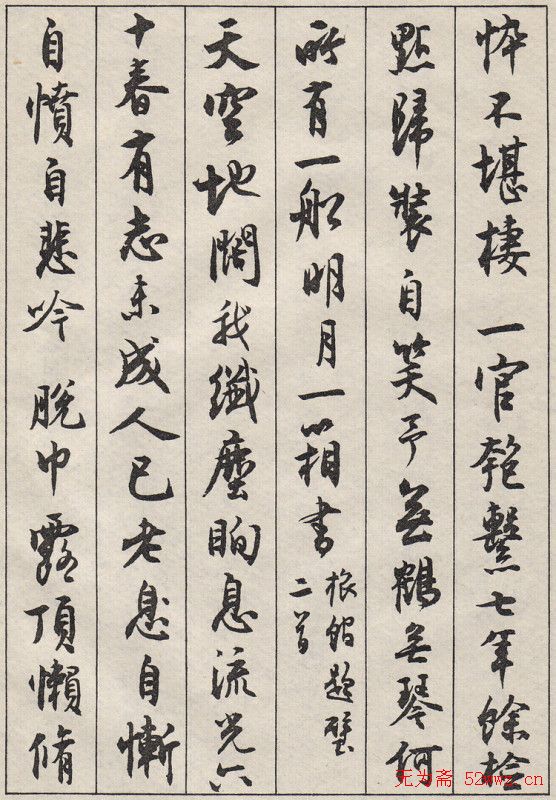 忰不堪棲一官匏繫七年餘撿
點歸裝自笑予無鶴無琴何
所有一船明月一箱書
旅館題壁
二首
天空地闊我纖塵眴息流光六
十春有志未成人已老自慚
自憤自悲吟脫巾露頂懶脩
无为斋 52wwz.cn